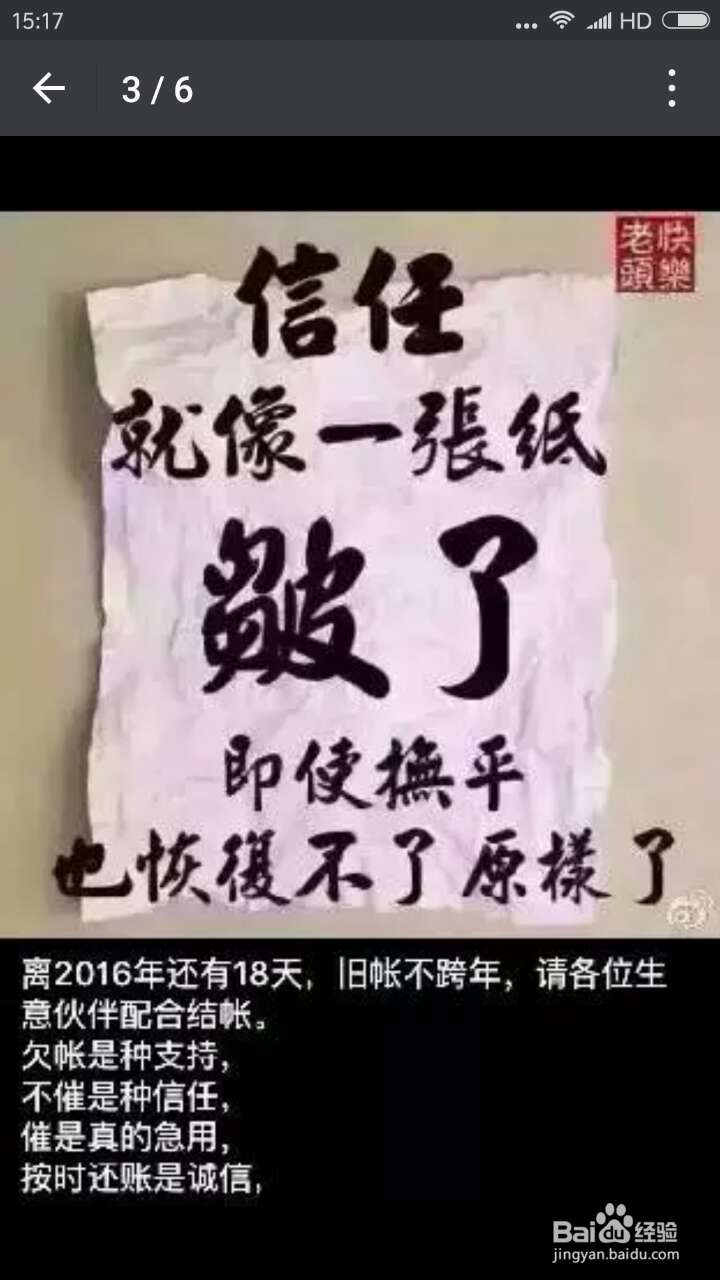 15:17
HD
3 / 6
快樂
老頭
信任
就像一張纸
皺了
即使撫平
也恢復不了原樣了
离2016年还有18天，旧帐不跨年，请各位生
意伙伴配合结帐。
欠帐是种支持，
不催是种信任，
催是真的急用，
按时还账是诚信，
Baidu经验
jingyan.baidu.com